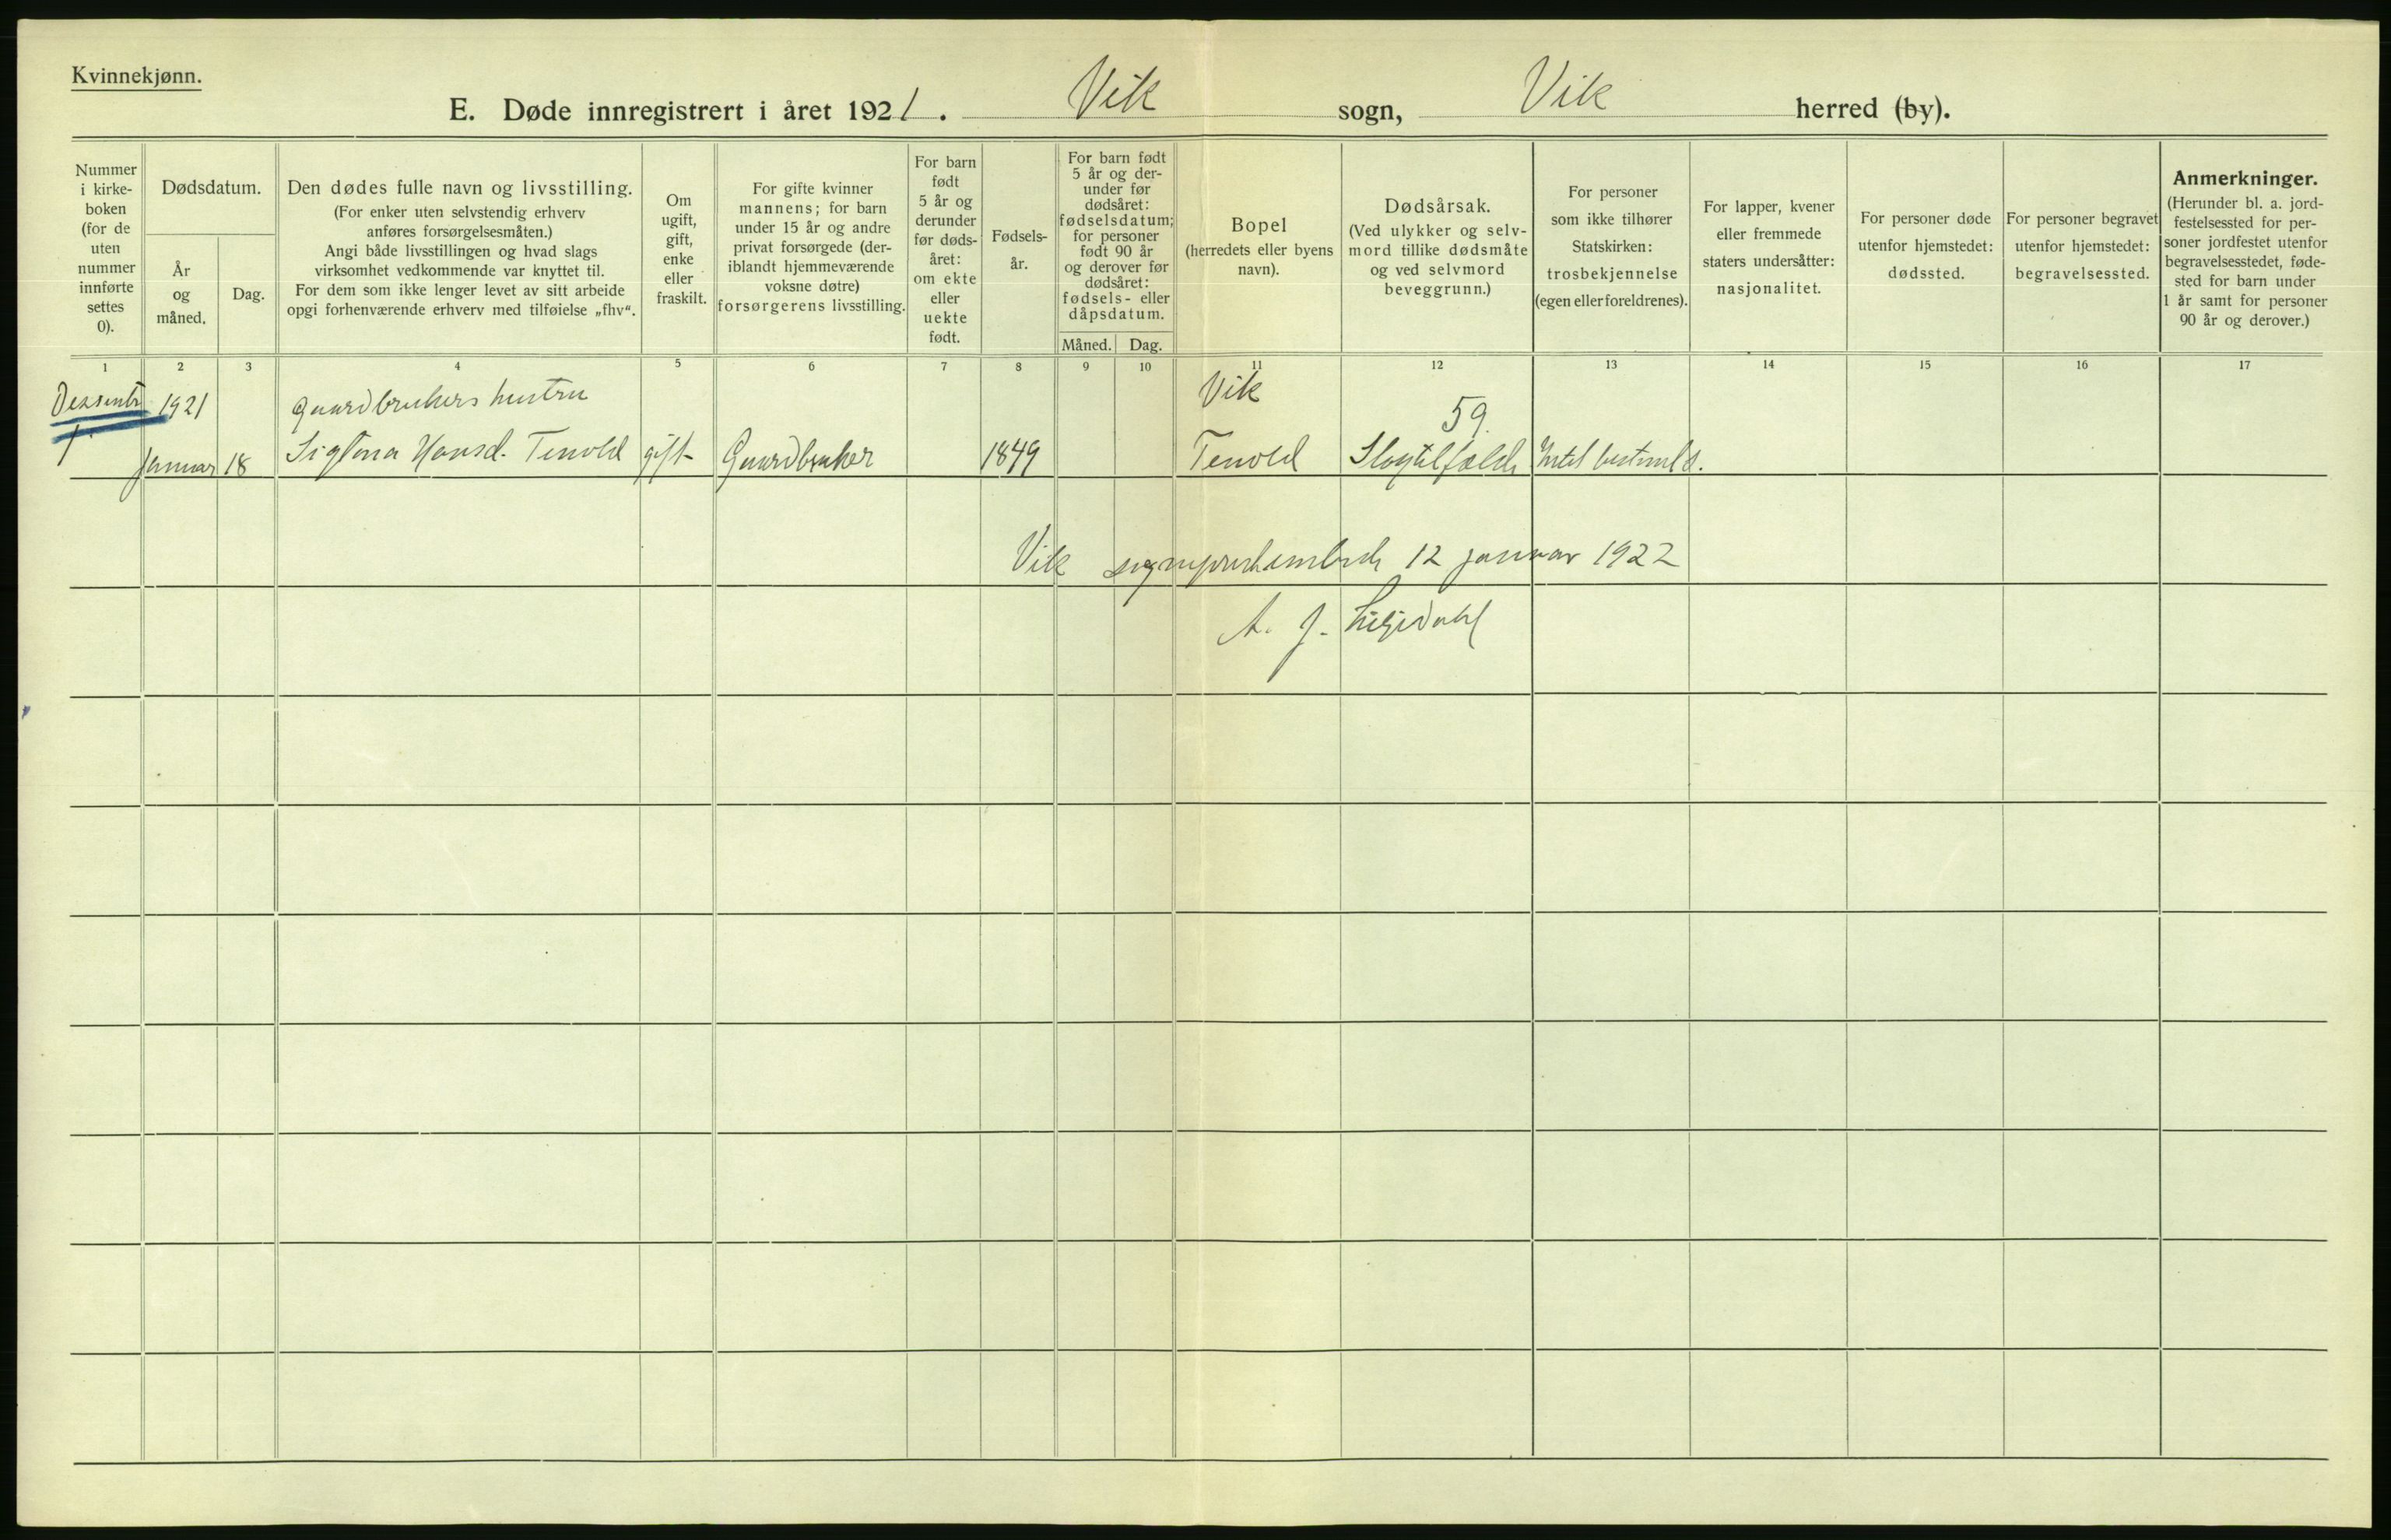 Kvinnekjønn.
E. Døde innregistrert i året 1921. Vik sogn, Vik herred (by).
Nummer i kirke- boken (for de uten nummer innførte settes 0).
Dødsdatum.
År og måned.
Dag.
Den dødes fulle navn og livsstilling.
(For enker uten selvstendig erhverv
anføres forsørgelsesmåten.)
Angi både livsstillingen og hvad slags
virksomhet vedkommende var knyttet til.
For dem som ikke lenger levet av sitt arbeide
opgi forhenværende erhverv med tilføielse „fhv“.
Om ugift, gift, enke eller fraskilt.
For gifte kvinner
mannens; for barn
under 15 år og andre
privat forsørgede (der-
iblandt hjemmeværende
voksne døtre)
forsørgerens livsstilling.
For barn født 5 år og derunder før døds- året: om ekte eller uekte født.
Fødsels- år.
For barn født
5 år og der-
under før
dødsåret:
fødselsdatum;
for personer
født 90 år
og derover før
dødsåret:
fødsels- eller
dåpsdatum.
Måned. Dag.
Bopel
(herredets eller byens
navn).
Dødsårsak.
(Ved ulykker og selv-
mord tillike dødsmåte
og ved selvmord
beveggrunn.)
For personer
som ikke tilhører
Statskirken:
trosbekjennelse
(egen eller foreldrenes).
For lapper, kvener
eller fremmede
staters undersåtter:
nasjonalitet.
For personer døde
utenfor hjemstedet:
dødssted.
For personer begravet
utenfor hjemstedet:
begravelsessted.
Anmerkninger.
(Herunder bl. a. jord-
festelsessted for per-
soner jordfestet utenfor
begravelsesstedet, føde-
sted for barn under
1 år samt for personer
90 år og derover.)
1 2 3 4 5 6 7 8 9 10 11 12 13 14 15 16 17
1921 Gaardbrukers hustru Vik 59.
1. Januar 18 Hansd. Tenold gift Gaardbruker 1849 Tenold Slagtilfælde Intet
Vik 12 januar 1922
A. J.